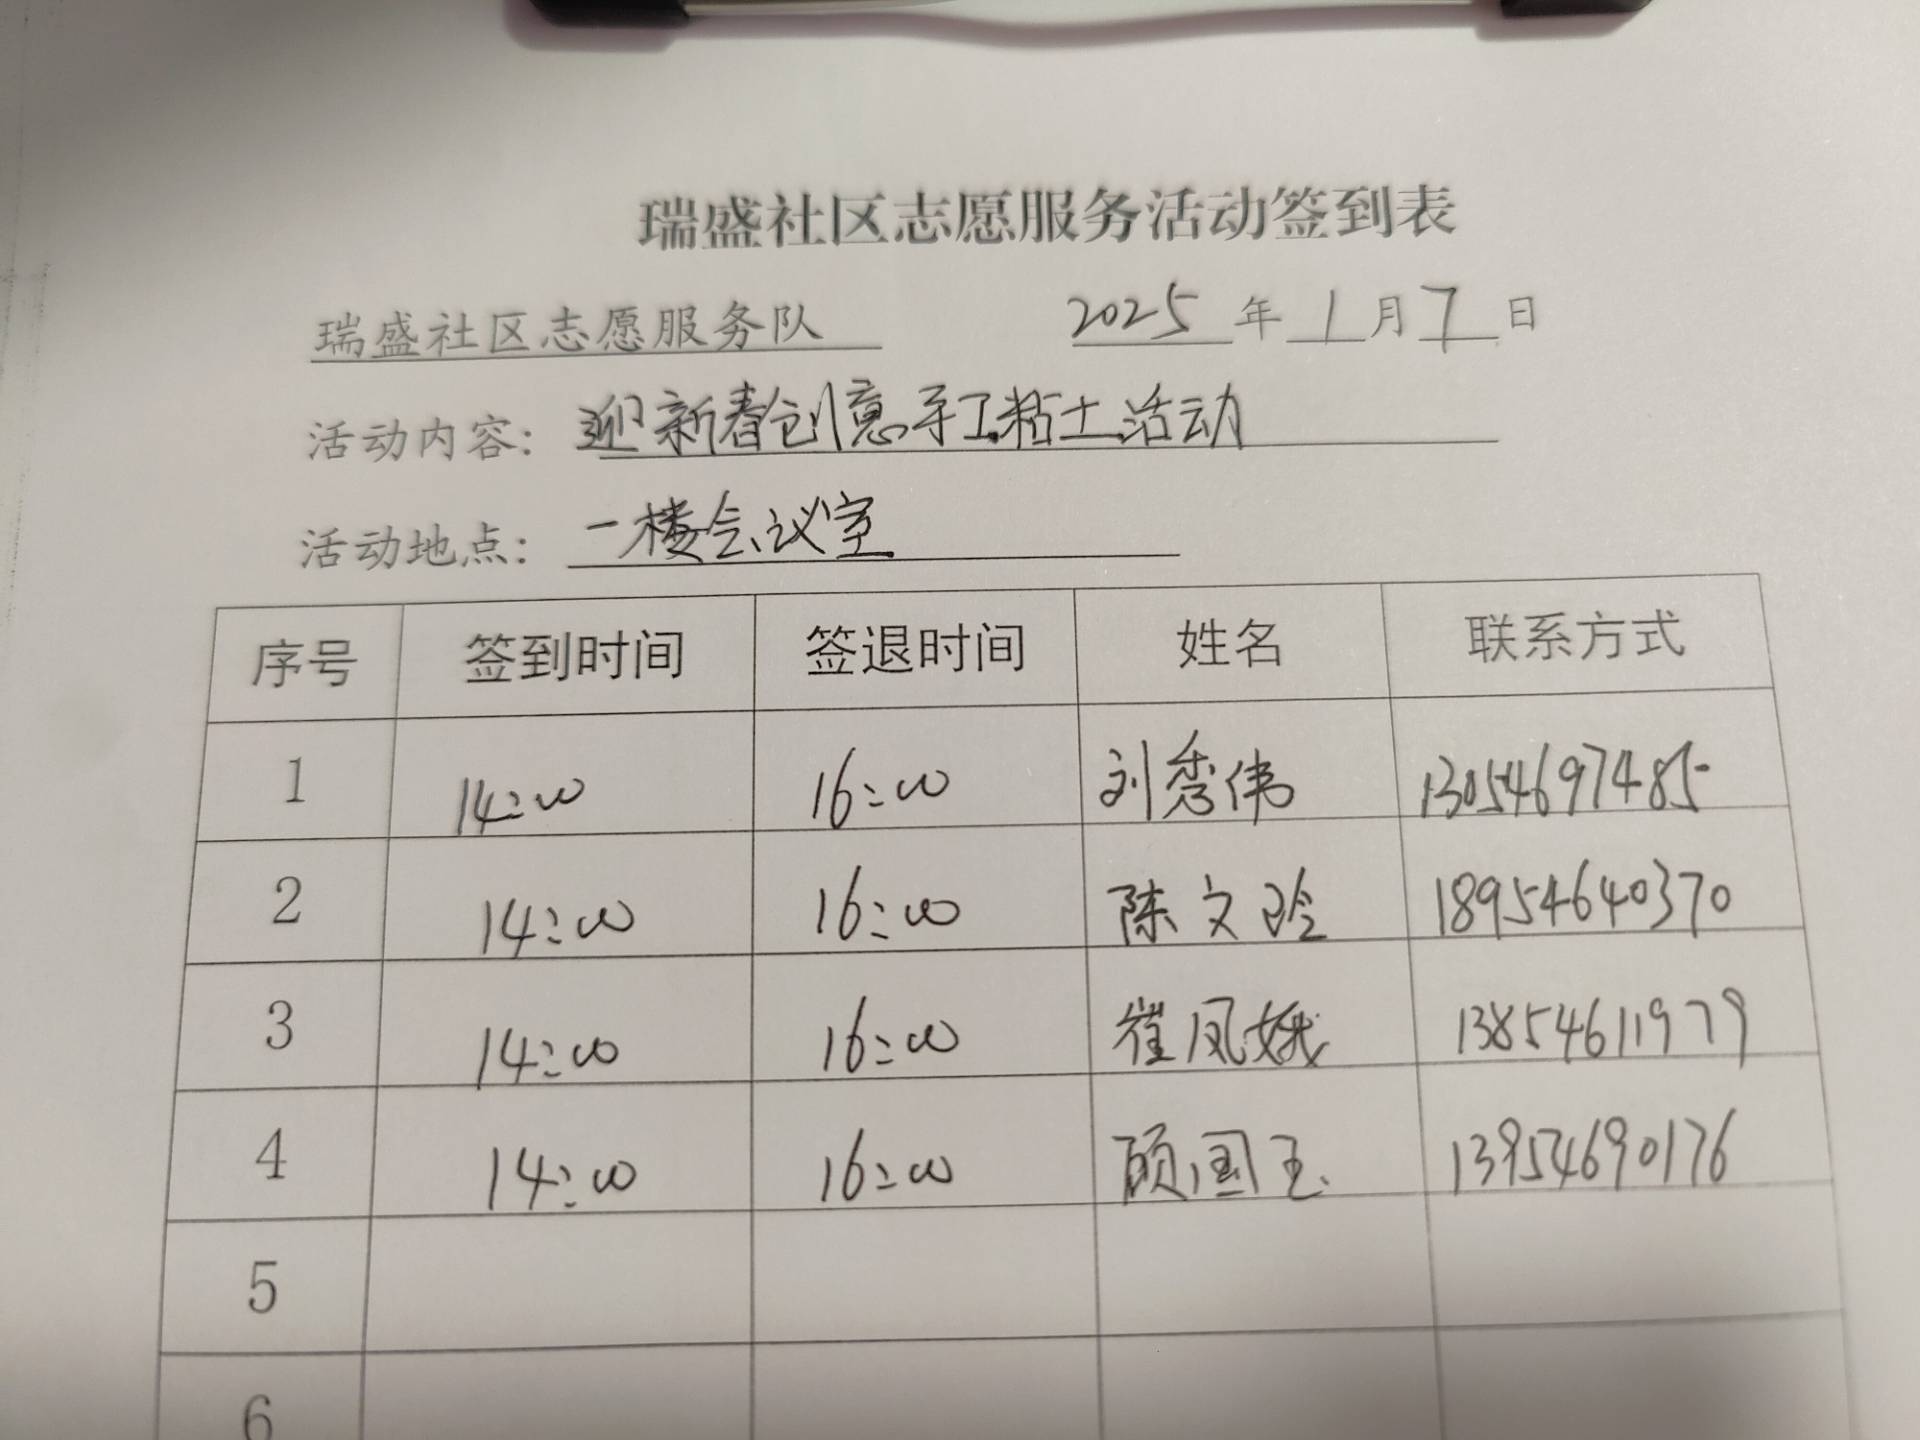 瑞盛社区志愿服务活动签到表
瑞盛社区志愿服务队 2025 年 1 月 7 日
活动内容: 迎新春创意手工粘土活动
活动地点: 一楼会议室
序号 签到时间 签退时间 姓名 联系方式
1 14:00 16:00 刘秀伟 13054697485
2 14:00 16:00 陈文玲 18954640370
3 14:00 16:00 崔凤娥 13854611979
4 14:00 16:00 顾国玉 13954690176
5
6